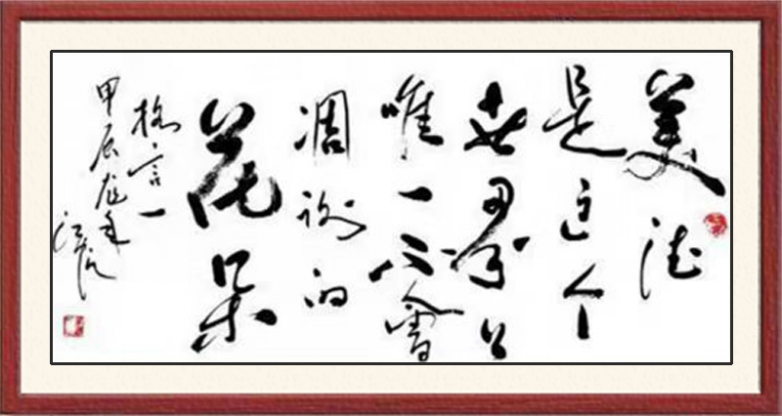 美德
是这个
世界上
唯一不会
凋谢的
花朵
格言一
甲辰龙年